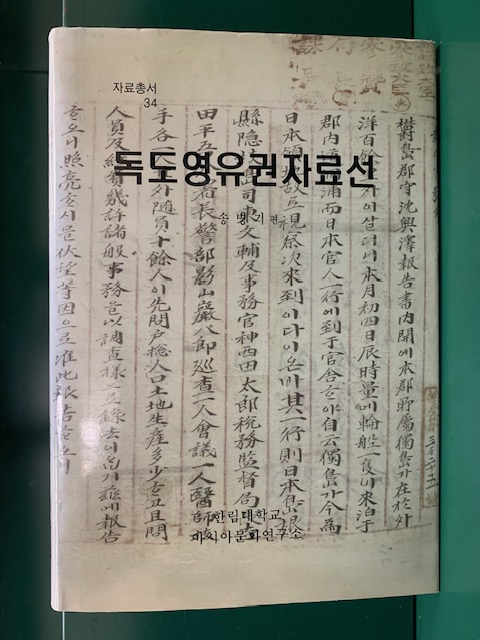 자료총서
34
독도영유권자료선
송병기 편
한림대학교
아시아문화연구소
欝島郡守沈興澤報告書內開에本郡所屬獨島가在於外
洋百餘里外이살더니本月初四日辰時量에輪船一隻이來泊于
郡內浦而日本官人一行에到于官舍ᄒᆞ야自云獨島가今爲
日本領地故로視察次來到이다이온바其一行則日本島根
縣隱島司東文輔及事務官神西田太郎稅務監督局
田平五署長警部影山巖八郎巡查一人會議一人醫師
手各一人其外隨員十餘人이先問戶摠人口土地生產多少ᄒᆞ고且問
人員及經費幾許諸般事務를以調查樣으로錄去이ᄋᆞᆸ기玆에報告
ᄒᆞ오니照亮ᄒᆞ시믈伏望等因으로准此報告ᄒᆞ오니